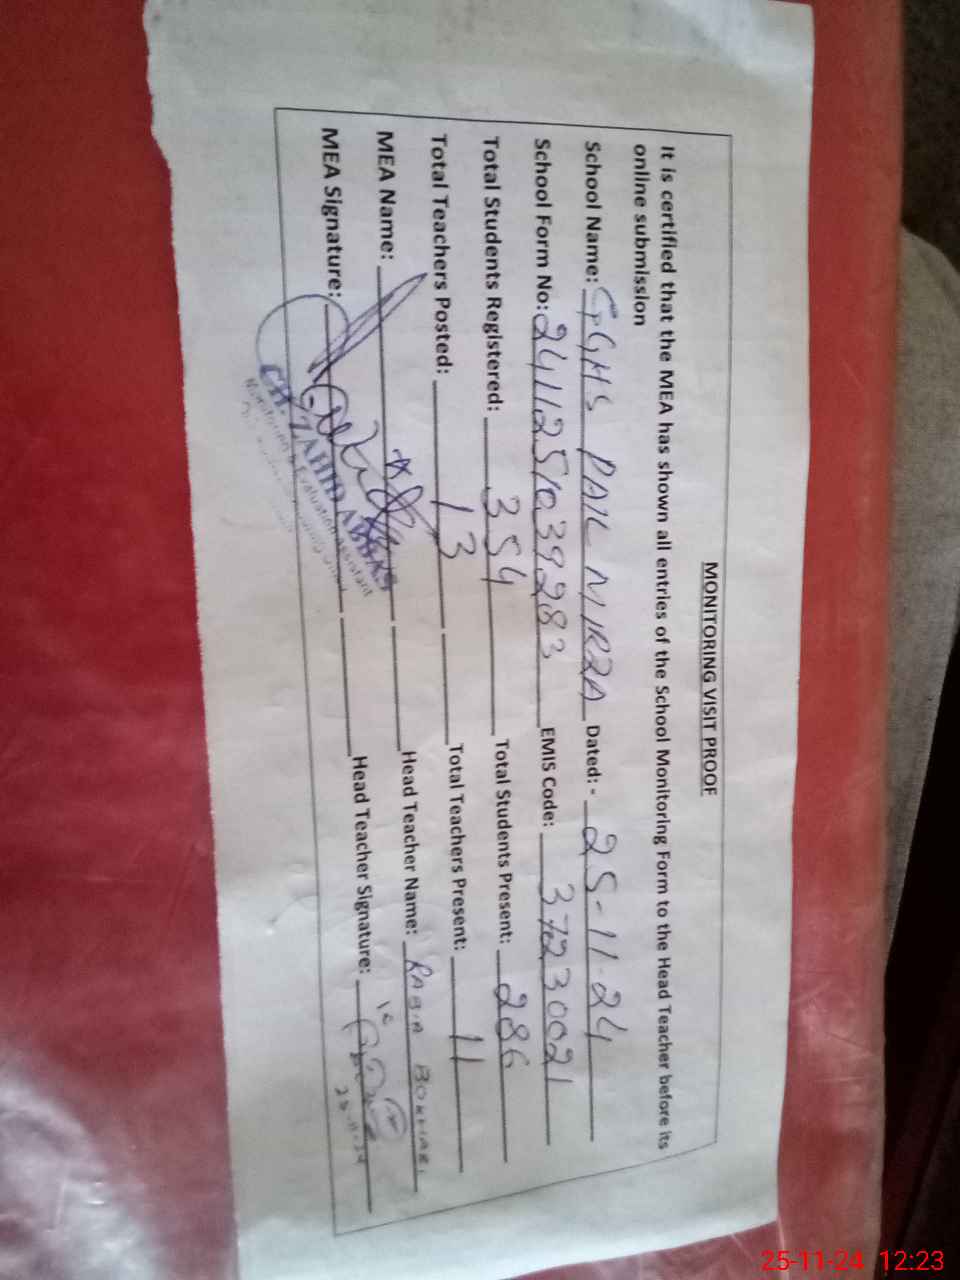 MONITORING VISIT PROOF
It is certified that the MEA has shown all entries of the School Monitoring Form to the Head Teacher before its
online submission
School Name: GGHS PAIL MIRZA Dated: - 25-11-24
School Form No: 241125103928 3 EMIS Code: 37230021
Total Students Registered: 354 Total Students Present: 286
Total Teachers Posted: 13 Total Teachers Present: 11
MEA Name: Head Teacher Name: RABIA BOKHARI
MEA Signature: Head Teacher Signature:
CH. ZAHID ABBAS
Monitoring & Evaluation Assistant
25-11-24
25-11-24 12:23